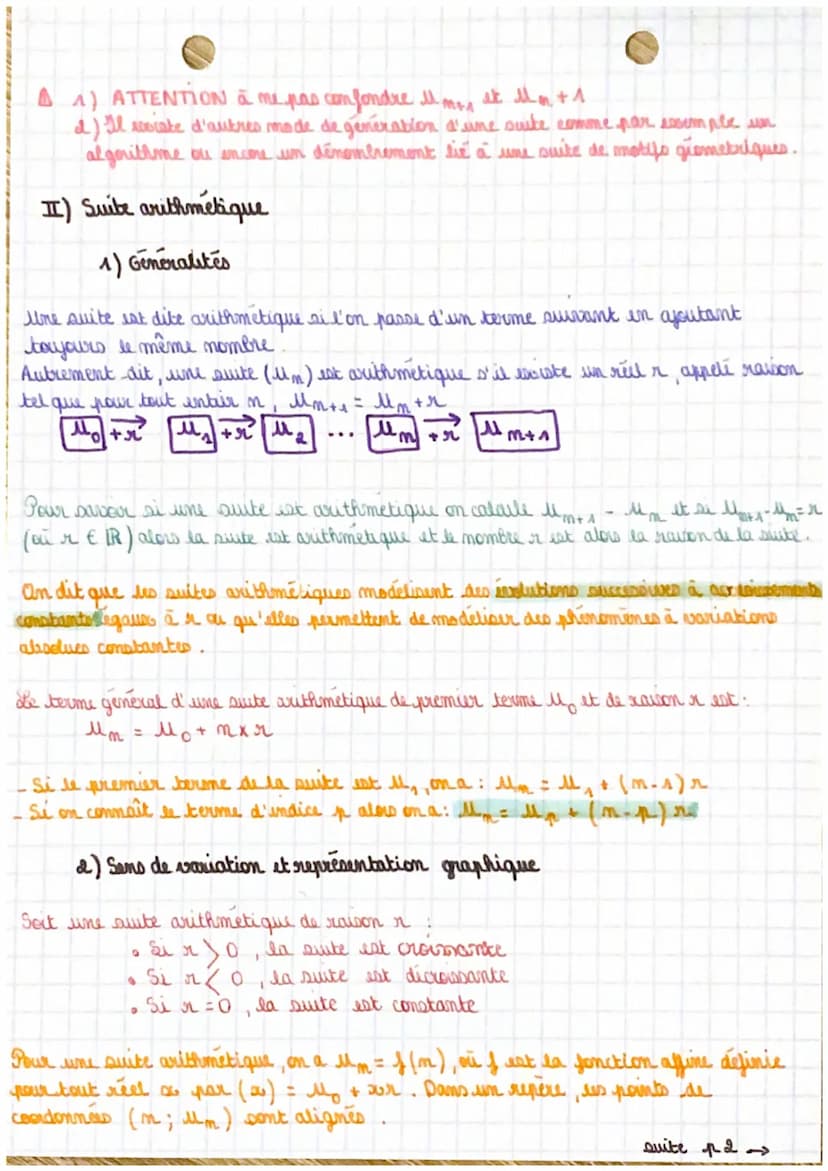 ⚠ 1) ATTENTION à ne pas confondre Uₙ₊₁ et Uₙ + 1
2) Il existe d'autres mode de génération d'une suite comme par exemple un
algorithme ou encore un dénombrement lié à une suite de motifs géometriques.
II) Suite arithmétique
1) Généralités
Une suite est dite arithmétique si l'on passe d'un terme suivant en ajoutant
toujours le même nombre.
Autrement dit, une suite (Uₙ) est arithmétique s'il existe un réel r, appelé raison
tel que pour tout entier n, Uₙ₊₁ = Uₙ + r
U₀ +r → U₁ +r → U₂ ... Uₙ +r → Uₙ₊₁
Pour savoir si une suite est arithmétique on calcule Uₙ₊₁ - Uₙ et si Uₙ₊₁-Uₙ=r
(où r ∈ ℝ) alors la suite est arithmétique et le nombre r est alors la raison de la suite.
On dit que les suites arithmétiques modélisent des évolutions successives à accroissements
constants égaux à r ou qu'elles permettent de modéliser des phénomènes à variations
absolues constantes.
Le terme général d'une suite arithmétique de premier terme U₀ et de raison r est :
Uₙ = U₀ + n x r
- Si le premier terme de la suite est U₁, on a : Uₙ = U₁ + (n-1) r
- Si on connaît le terme d'indice p alors on a : Uₙ = Uₚ + (n-p) r
2) Sens de variation et représentation graphique
Soit une suite arithmétique de raison r :
• Si r > 0, la suite est croissante
• Si r < 0, la suite est décroissante
• Si r = 0, la suite est constante
Pour une suite arithmétique, on a Uₙ = f(n), où f est la fonction affine définie
pour tout réel x par (x) = U₀ + xr. Dans un repère, les points de
coordonnées (n ; Uₙ) sont alignés.
suite p2 →